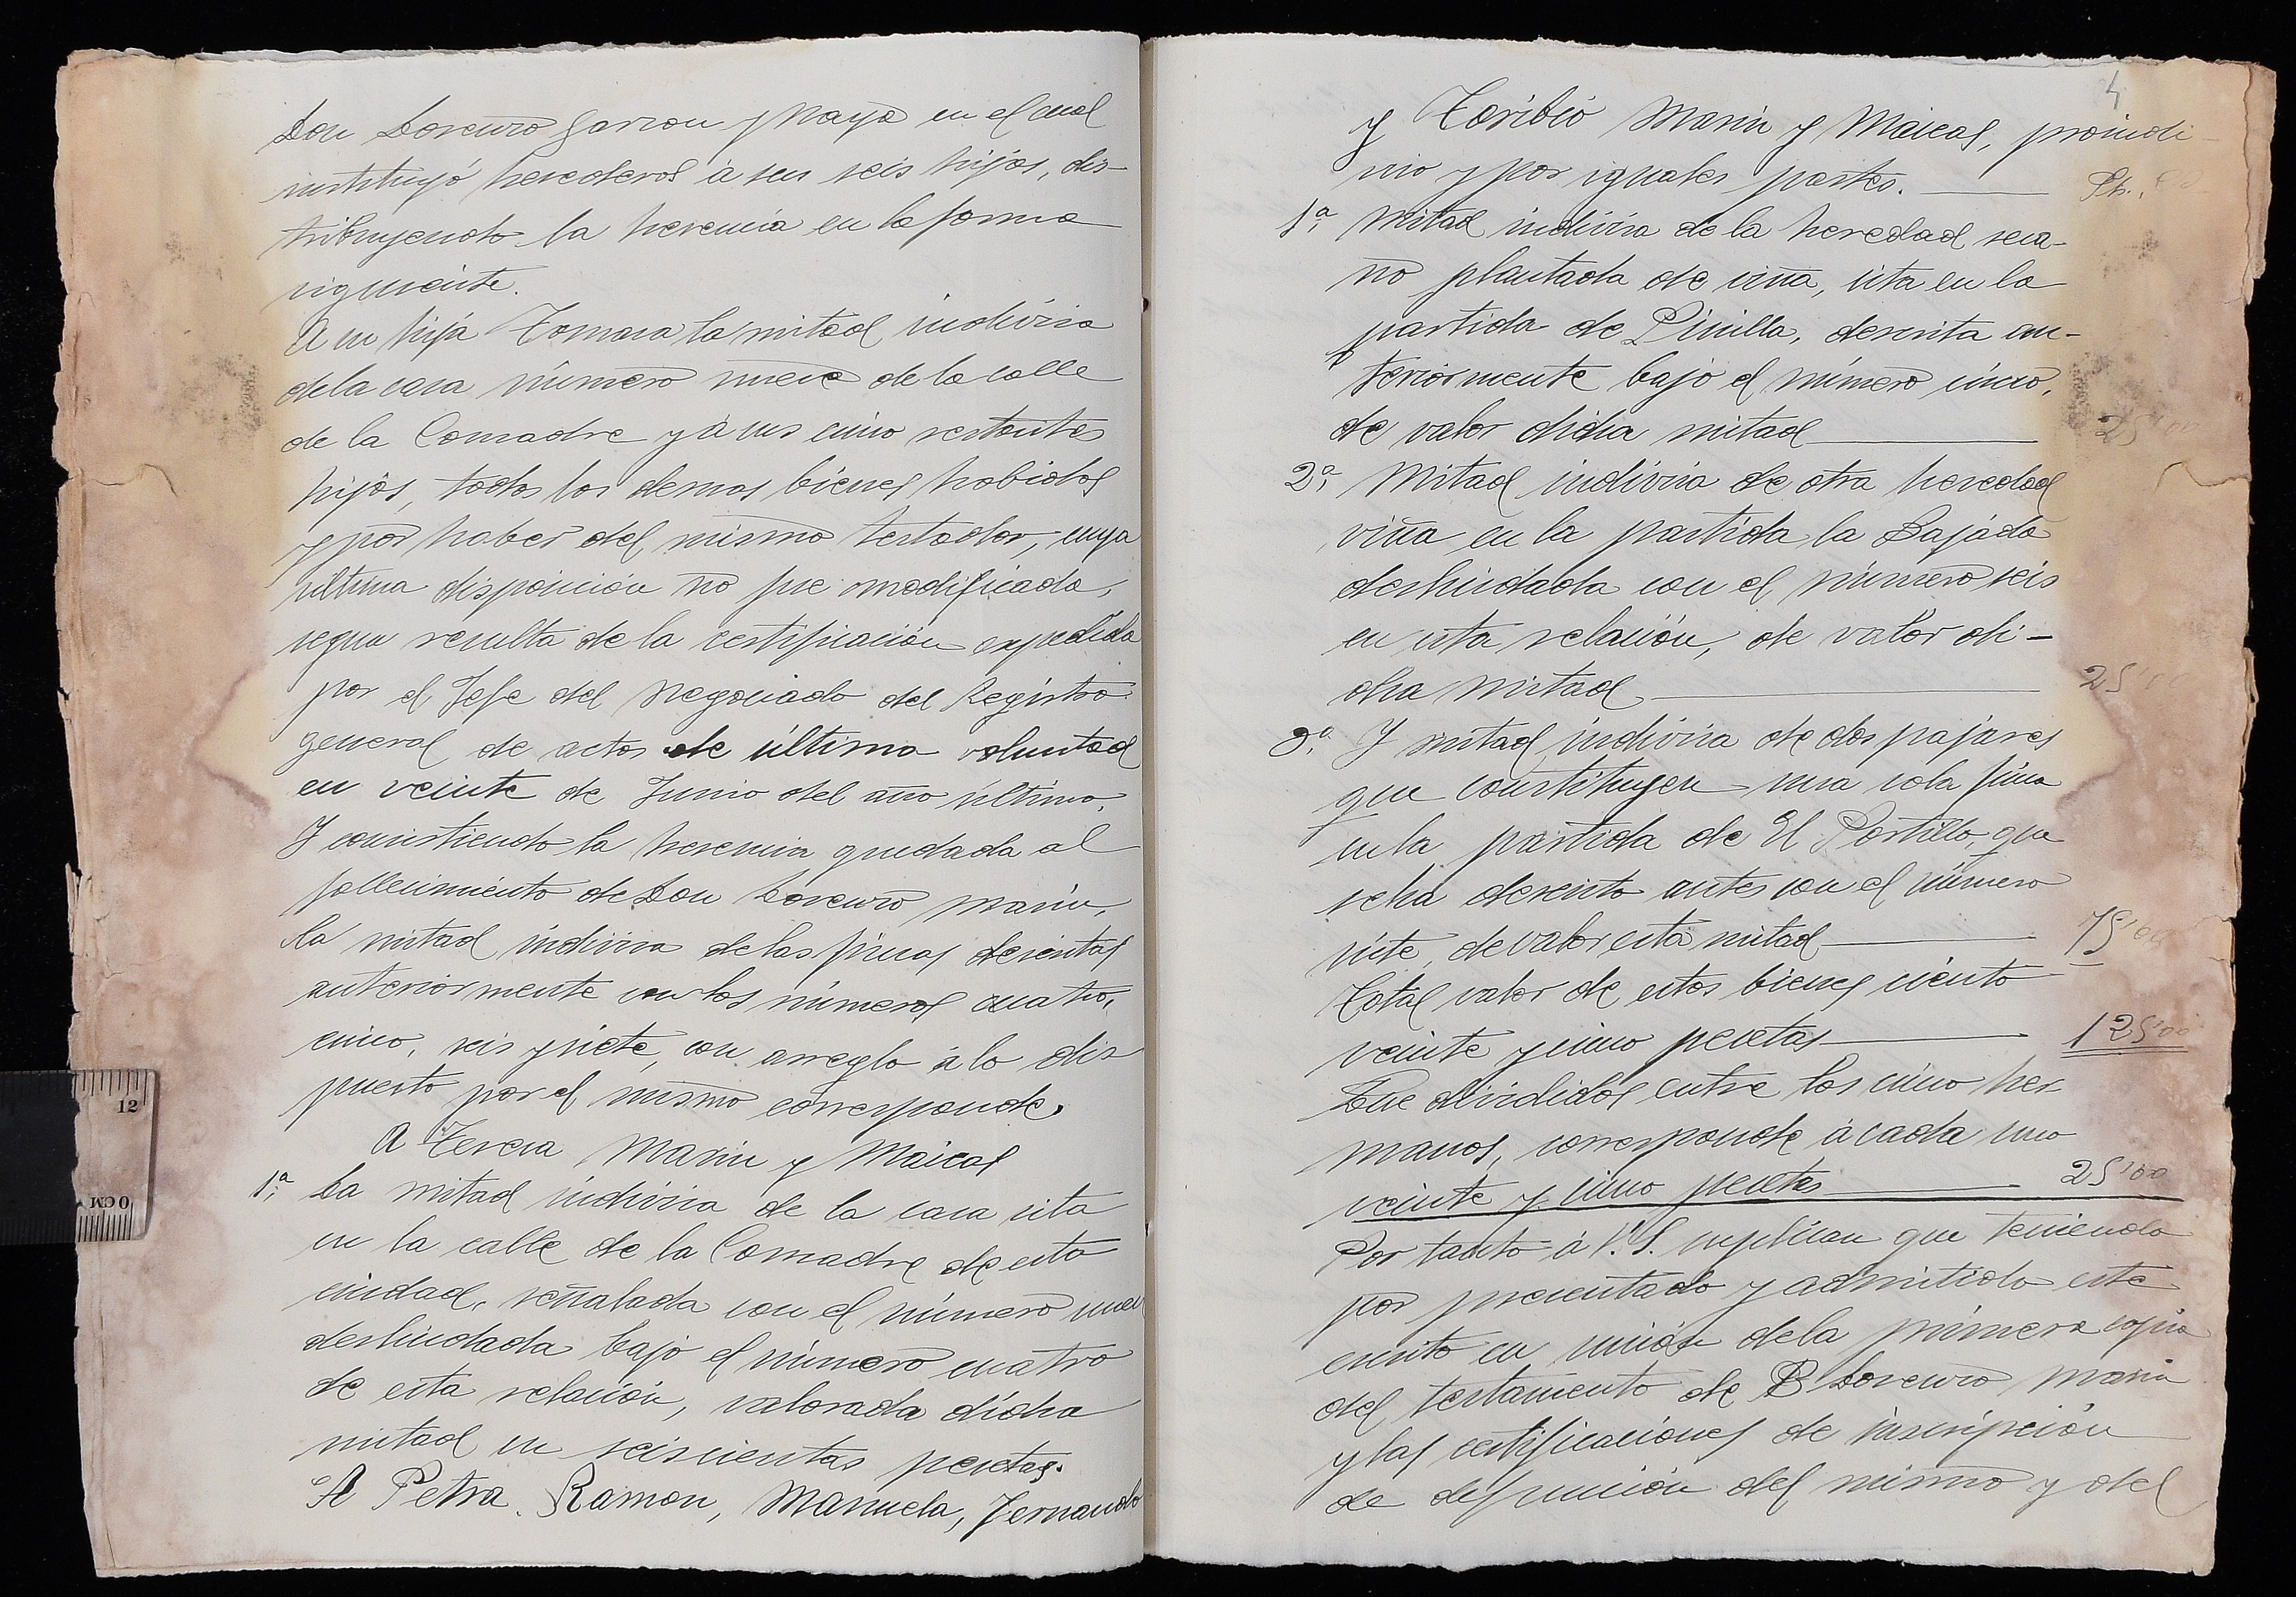 Don Lorenzo Garzon y Mayo en el cual
instituyó herederos á sus seis hijos, dis-
tribuyendo la herencia en la forma
siguiente.
A su hija Tomasa la mitad indivisa
de la casa número nueve de la calle
de la Comadre y á sus cinco restantes
hijos, todos los demas bienes habidos
y por haber del mismo testador, cuya
ultima disposición no fue modificada,
segun resulta de la certificación expedida
por el Jefe del Negociado del Registro
general de actos de última voluntad
en veinte de Junio del año último.
Y consistiendo la herencia quedada al
fallecimiento de Don Lorenzo Marin,
la mitad indivisa de las fincas descritas
anteriormente con los números cuatro,
cinco, seis y siete, con arreglo á lo dis
puesto por el mismo corresponde.
A Teresa Marin y Maicas
1ª La mitad indivisa de la casa sita
en la calle de la Comadre de esta
ciudad, señalada con el número nueve
deslindada bajo el número cuatro
de esta relación, valorada dicha
mitad en seiscientas pesetas.
A Petra, Ramon, Manuela, Fernando
4
y Toribio Marin y Maicas, proindi-
viso y por iguales partes. Pts.
1ª Mitad indivisa de la heredad seca-
no plantada de viña, sita en la
partida de Pinilla, descrita an-
teriormente bajo el número cinco,
de valor dicha mitad 25'00
2ª Mitad indivisa de otra heredad
viña en la partida la Bajada
deslindada con el número seis
en esta relación, de valor di-
cha mitad 25'00
3ª Y mitad indivisa de dos pajares
que constituyen una sola finca
en la partida de El Portillo, que
se ha descrito antes con el número
siete, de valor esta mitad 75'00
Total valor de estos bienes ciento
veinte y cinco pesetas 125'00
Que divididos entre los cinco her-
manos, corresponde á cada uno
veinte y cinco pesetas 25'00
Por tanto á V.S. suplican que teniendo
por presentado y admitido este
escrito en unión de la primera copia
del testamento de D Lorenzo Marin
y las certificaciones de inscripción
de defunción del mismo y del